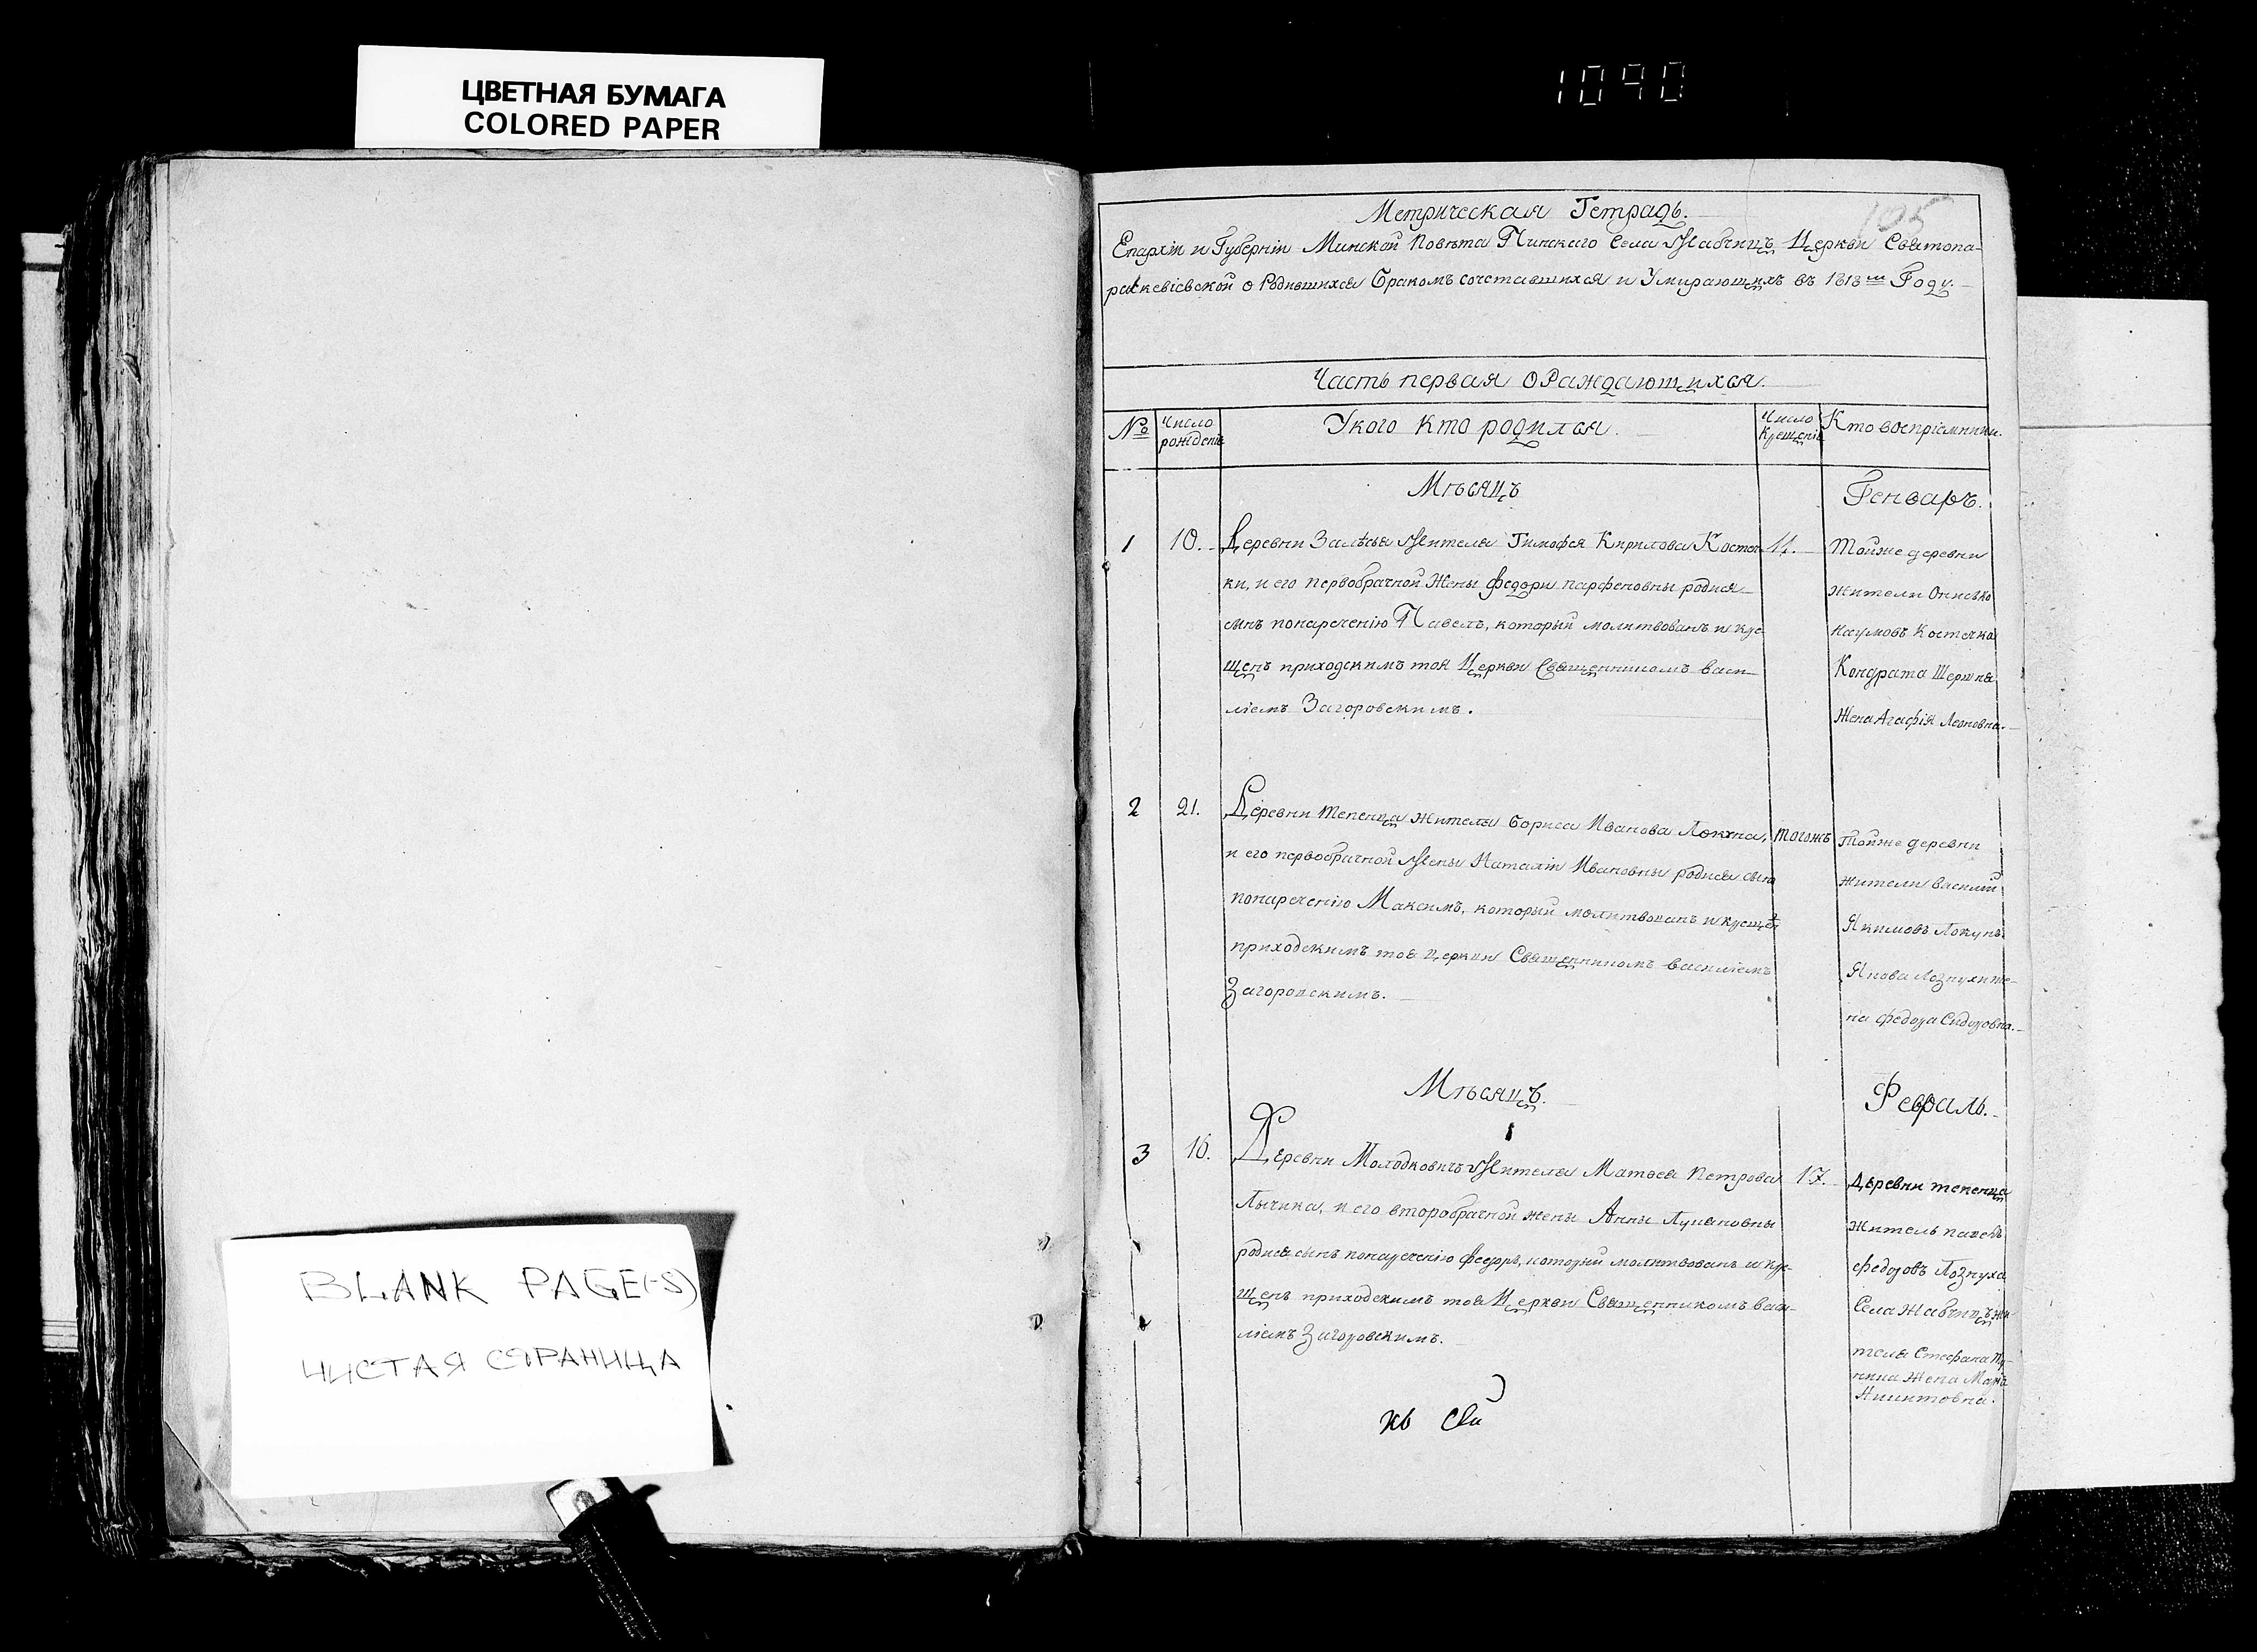 ЦВЕТНАЯ БУМАГА
COLORED PAPER
1090
BLANK PAGE(-S)
ЧИСТАЯ СТРАНИЦА
105
Метрическая Тетрадь.
Епархіи и Губерніи Минской Повѣта Пинскаго Села Жабчицъ Церкви Святопа-
раскевіевской о Родившихся Бракомъ сочетавшихся и Умирающихъ въ 1818 м Году.
Часть первая О Раждающихся.
№ Число рожденія У кого кто родился. Число крещенія Кто воспріемники.
Мѣсяцъ Генваръ.
1 10. Деревни Залѣсья Жителя Тимофея Кирилова Костеч- 11.
ки, и его первобрачной Жены Федори парфеновны родися
сынъ понареченію Павелъ, который молитвованъ и кре-
щенъ приходскимъ тоя Церкви Священникомъ васи-
ліемъ Загоровскимъ.
Тойже деревни
жители Онисько
наумовъ Костечка
Кондрата Шершня
Жена Агафія Леоновна.
2 21. Деревни тепенца жителя бориса Иванова Локтна, тогожъ
и его первобрачной Жены Наталіи Ивановны родися сынъ
понареченію Максимъ, который молитвованъ и крещен
приходскимъ тоя церкви Священникомъ василіемъ
Загоровскимъ.
Тойже деревни
жители василій
Якимовъ Локунъ
Янова Лозпухи же-
на федора Сидоровна.
Мѣсяцъ. Февраль.
3 16. Деревни Молодковичъ Жителя Матвея Петрова 17.
Лычика, и его второбрачной жены Анны Лукановны
родися сынъ понареченію Федоръ, который молитвованъ и кре-
щенъ приходскимъ тоя Церкви Священникомъ васи-
ліемъ Загоровскимъ.
Деревни тепенца
житель павелъ
федоровъ Лозпуха
Села Жабчицъ жи-
теля Стефана
жена Марія
Никитовна.